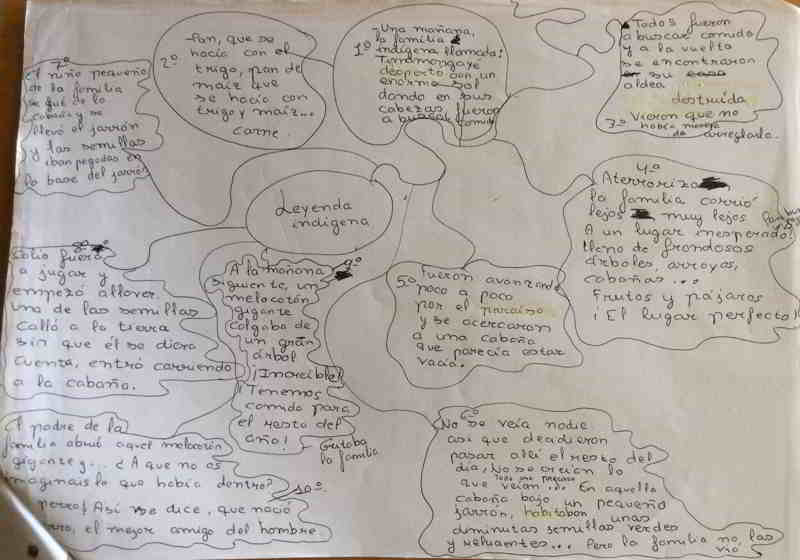 Leyenda
indígena
1º
-Una mañana,
la familia
indígena llamada:
desperto con un
enorme sol
dando en sus
cabezas, fueron
a buscar comida
2º
-Pan, que se
hacía con el
trigo, pan de
maíz que
se hacía con
trigo y maíz...
carne
Todos fueron
a buscar comida
y a la vuelta
se encontraron
su
aldea
destruída
3º Vieron que no
había manera
de arreglarlo.
4º
Aterroriza
la familia corrió
lejos muy lejos
A un lugar inesperado!
lleno de frondosos
árboles, arroyos,
cabañas...
Frutos y pájaros
¡El lugar perfecto!
5º Fueron avanzando
poco a poco
por el paraíso
y se acercaron
a una cabaña
que parecía estar
vacía.
6º
No se veía nadie
asi que decidieron
pasar allí el resto del
día, No se creían lo
que veían... En aquella
cabaña bajo un pequeño
jarrón, habitaban unas
diminutas semillas verdes
y reluentes... Pero la familia no las
vio
7º
El niño pequeño
de la familia
se fué de la
cabaña y se
llevó el jarrón
y las semillas
iban pegadas en
la base del jarrón
8º
Salio fuera
a jugar y
empezó allover.
una de las semillas
calló a la tierra
sin que él se diera
cuenta, entró corriendo
a la cabaña.
9º
A la mañana
siguiente, un
melocotón
gigante
colgaba de
un gran
árbol
¡Increíble!
¡Tenemos
comida para
el resto del
año!
- Gritaba
la familia
10º
El padre de la
familia abrió aquel melocotón
gigante y... ¿A que no os
imaginais lo que había dentro?
perro! Así se dice, que nació
el mejor amigo del hombre